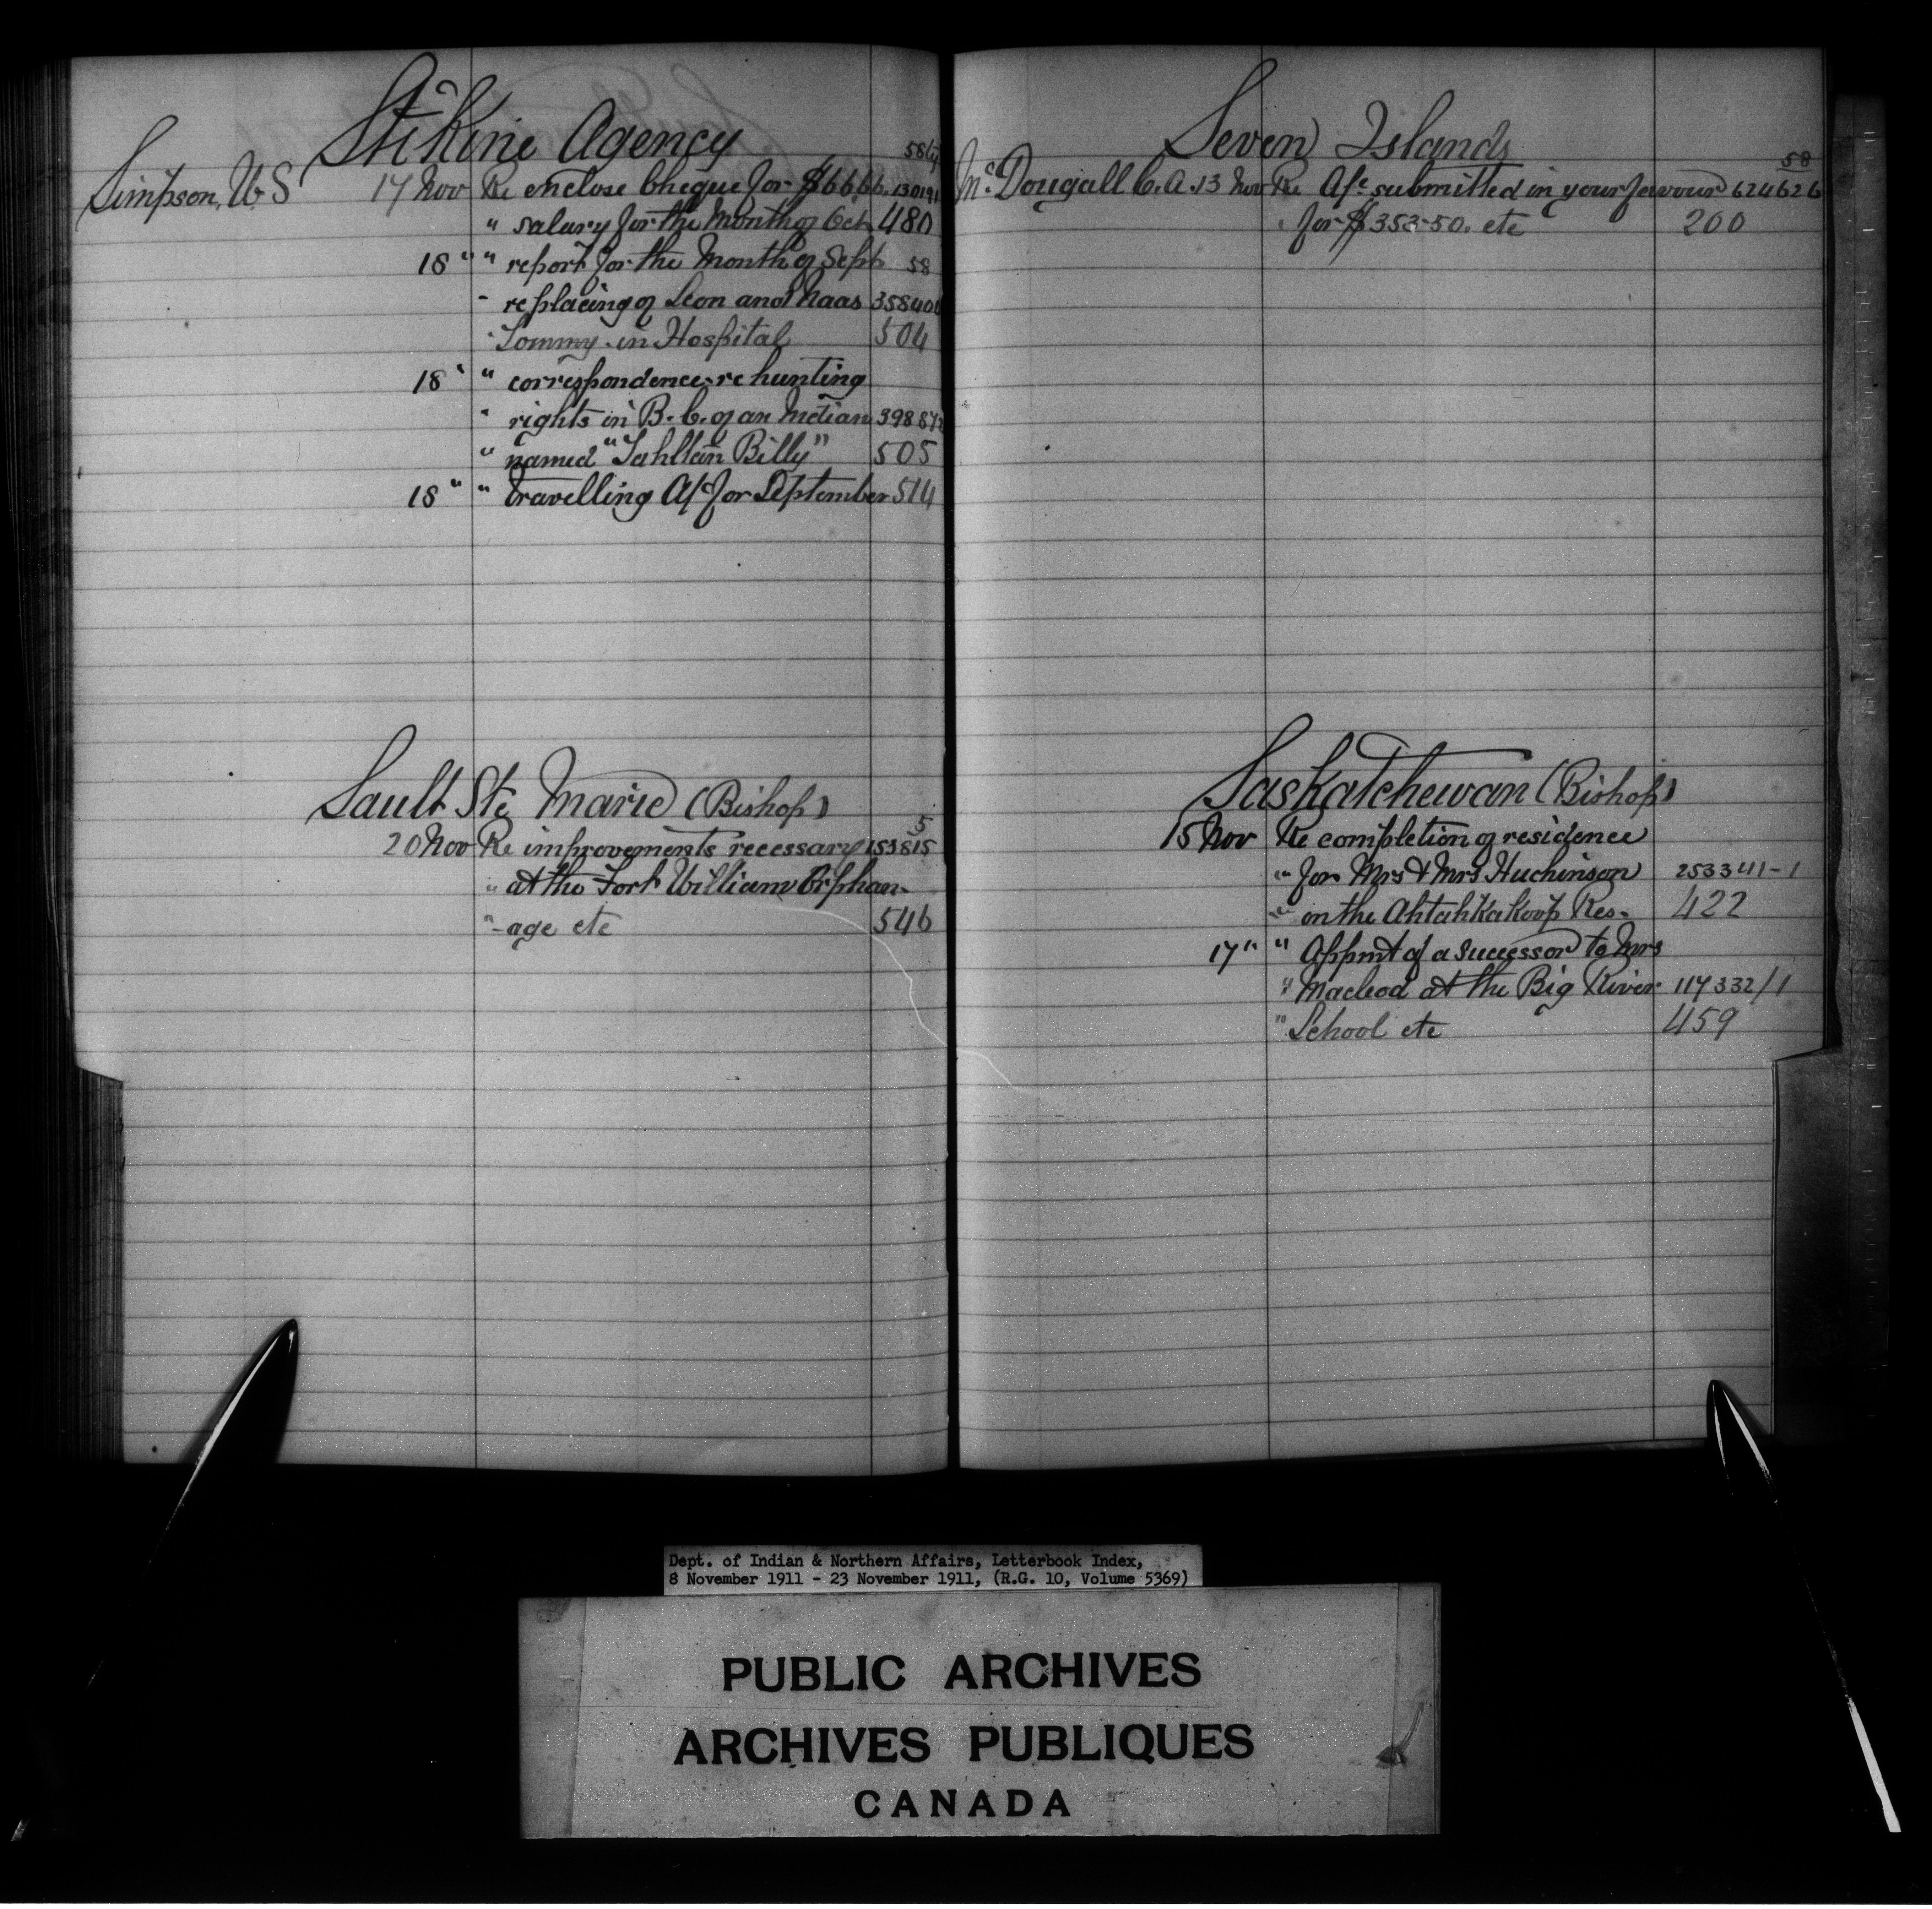 Stikine Agency
Simpson, W. S 17 Nov Re enclose Cheque for $66.66. 130191
" salary for the Month of Oct 480
18 " " report for the Month of Sept 58
" replacing of Leon and Naas 358400
" Tommy in Hospital 504
18 " " correspondence re hunting
" rights in B.C. of an Indian
" named "Tahltan Billy" 505
18 " " travelling A/c for September 514
Sault Ste Marie (Bishop)
5
20 Nov Re improvements necessary 153815
" at the Fort William Orphan-
"-age etc 546
Seven Islands
58
McDougall C. A. 13 Nov Re A/c submitted in your favour 624626
" for $353-50. etc 200
Saskatchewan (Bishop)
15 Nov Re completion of residence
" for Mrs & Mrs Huchinson 253341-1
" on the Ahtahkakoop Res- 422
17 " " Appmt of a successor to Mrs
" Macleod at the Big River 117332/1
" School etc 459
Dept. of Indian & Northern Affairs, Letterbook Index,
8 November 1911 - 23 November 1911, (R.G. 10, Volume 5369)
PUBLIC ARCHIVES
ARCHIVES PUBLIQUES
CANADA